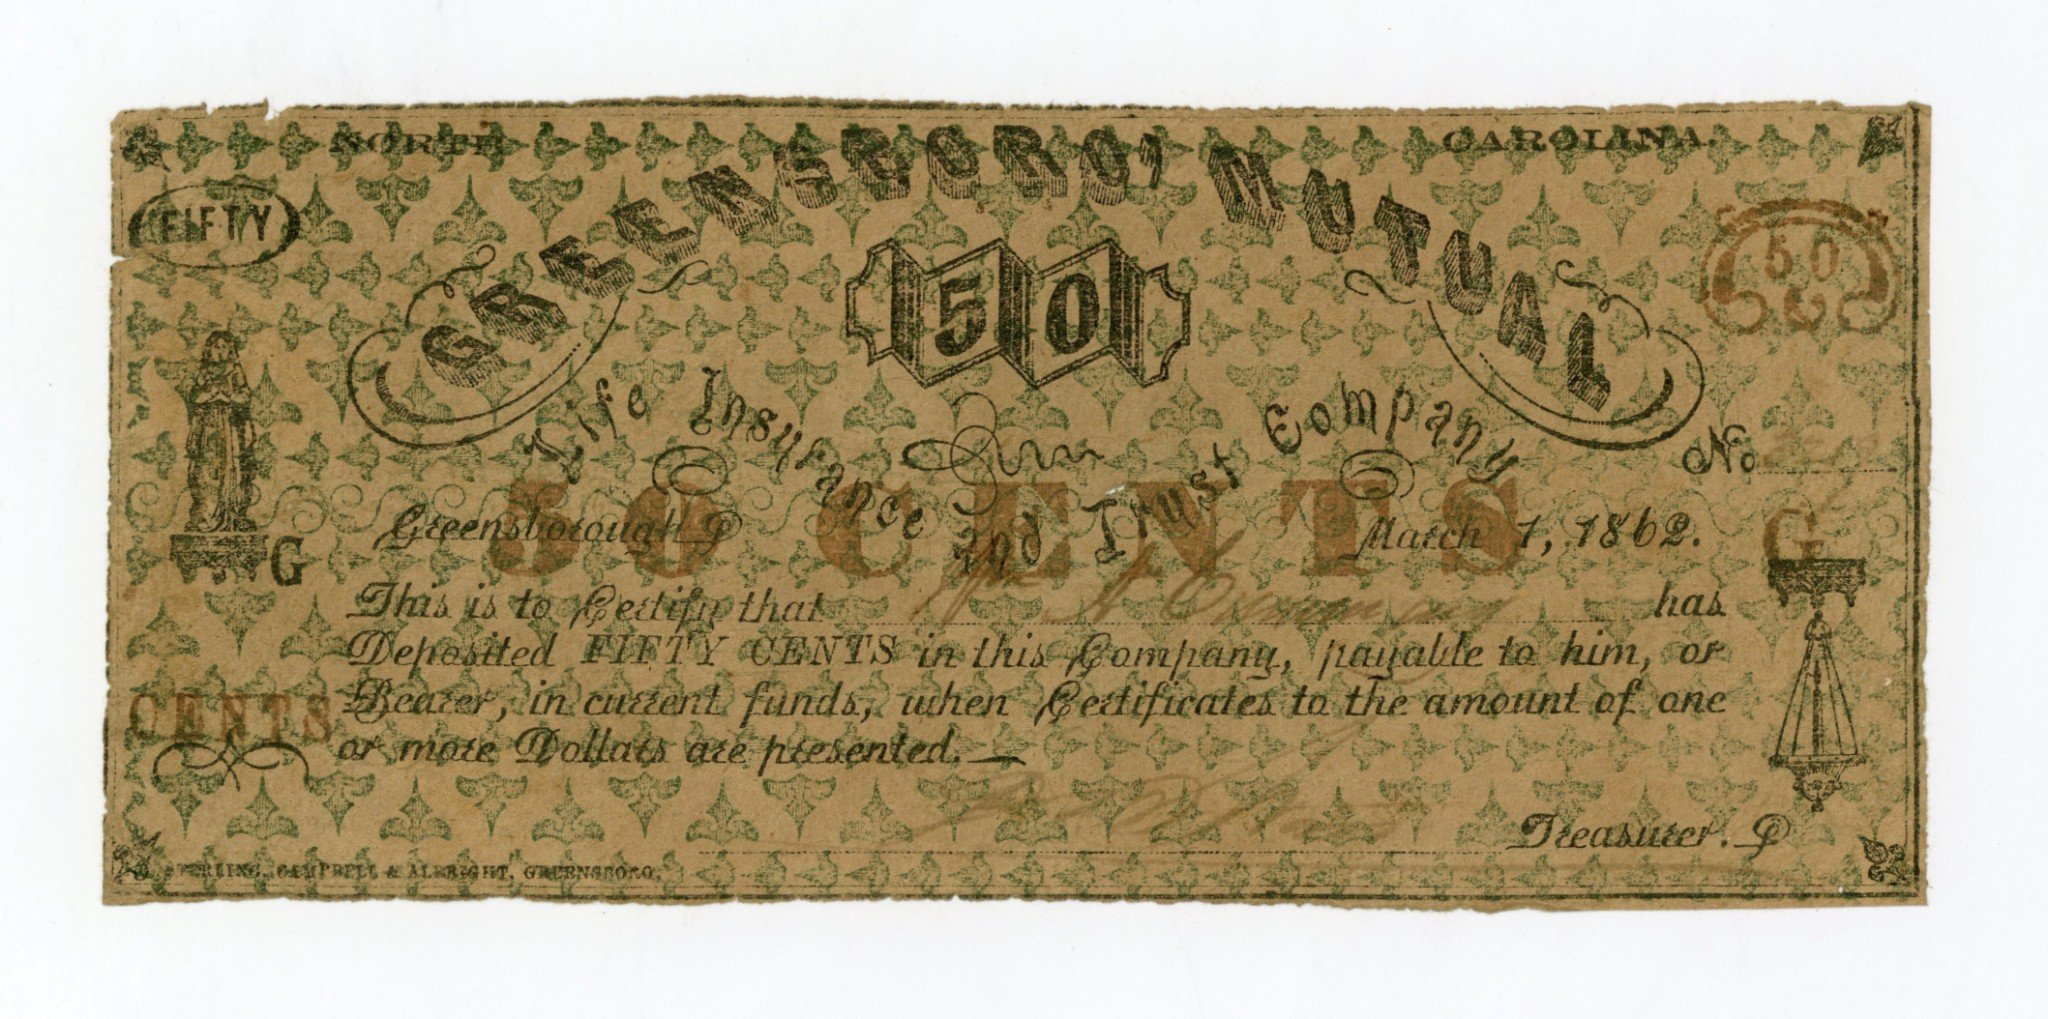 NORTH CAROLINA.
FIFTY
GREENSBORO' MUTUAL
50
50
Life Insurance and Trust Company
No
50 CENTS
Greensborough March 1, 1862.
G
G
This is to Certify that Wm A has
Deposited FIFTY CENTS in this Company, payable to him, or
Bearer, in current funds, when Certificates to the amount of one
or more Dollars are presented.
CENTS
Treasurer.
STERLING, CAMPBELL & ALBRIGHT, GREENSBORO.